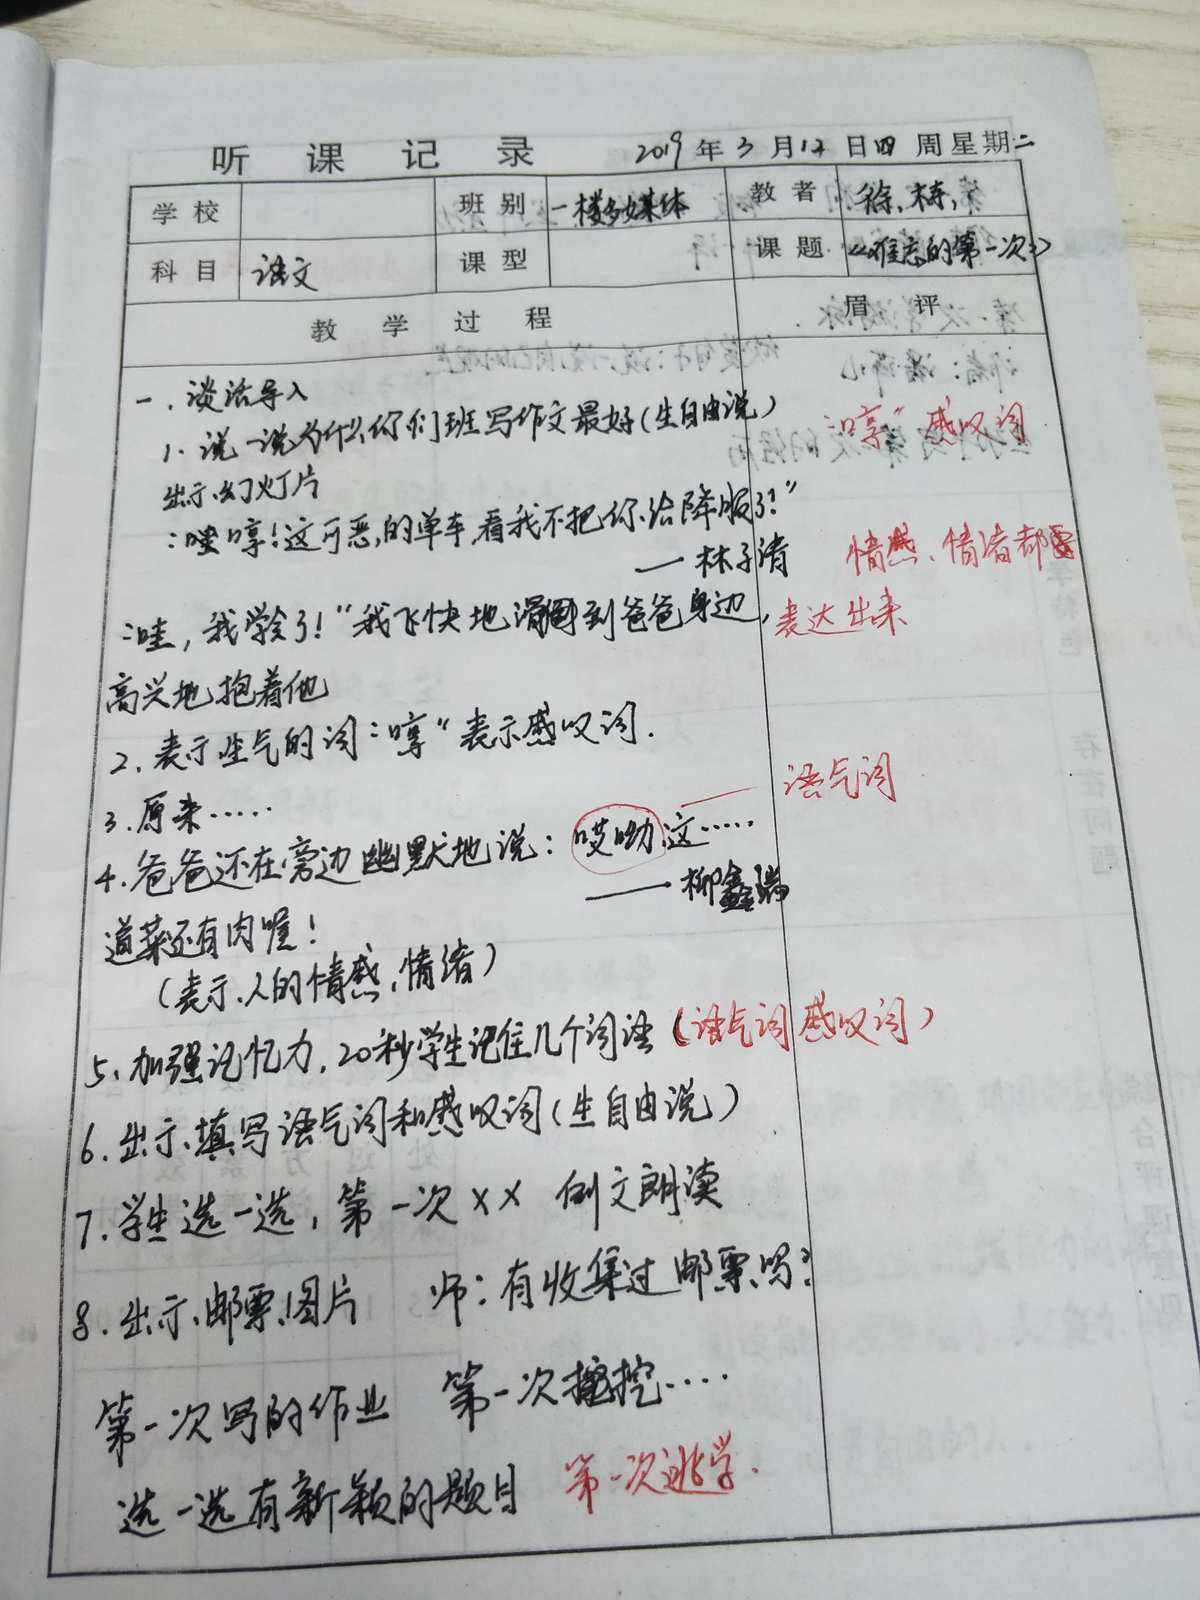 听课记录 2019年3月12日四周星期二
学校 班别 一楼多媒体 教者 徐栋
科目 语文 课型 课题 《难忘的第一次》
教学过程 眉评
一、谈话导入
1、说一说为什么你们班写作文最好(生自由说)
“哼”感叹词
出示幻灯片
“哼!这可恶的单车,看我不把你给降服了!”
——林子清
情感、情绪都要
表达出来
“哇,我学会了!”我飞快地滑到爸爸身边,
高兴地抱着他
2、表示生气的词“哼”表示感叹词.
3.原来……
语气词
4.爸爸还在旁边幽默地说:哎呦,这……
——柳鑫瑞
道菜还有肉喔!
(表示人的情感,情绪)
5、加强记忆力,20秒学生记住几个词语(语气词感叹词)
6.出示填写语气词和感叹词(生自由说)
7.学生选一选,第一次×× 例文朗读
8.出示邮票图片 师:有收集过邮票吗?
第一次写的作业 第一次挖……
选一选有新颖的题目 第一次逃学.